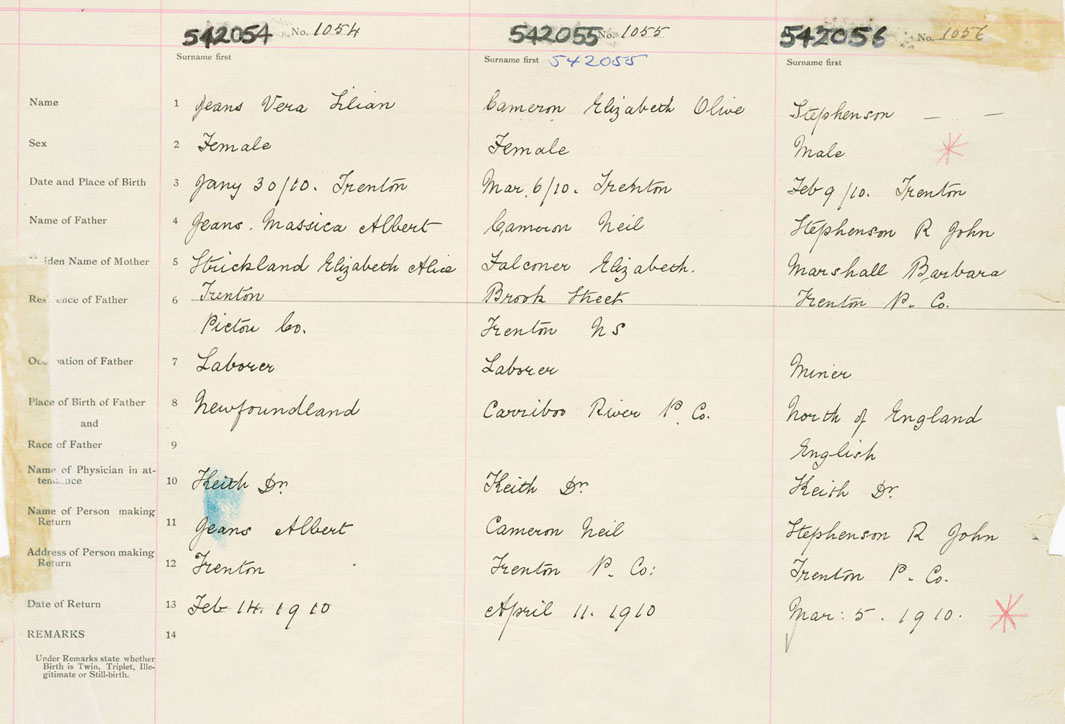 542054 No. 1054 542055 No. 1055 542056 No. 1056
Surname first Surname first 542055 Surname first
Name 1 Jeans Vera Lilian Cameron Elizabeth Olive Stephenson — —
Sex 2 Female Female Male
Date and Place of Birth 3 Jany 30/10. Trenton Mar. 6/10. Trenton Feb 9/10. Trenton
Name of Father 4 Jeans. Massica Albert Cameron Neil Stephenson R John
iden Name of Mother 5 Strickland Elizabeth Alice Falconer Elizabeth. Marshall Barbara
Res ence of Father 6 Trenton Brook Street Trenton P. Co.
Pictou Co. Trenton NS
Occupation of Father 7 Laborer Laborer Miner
Place of Birth of Father 8 Newfoundland Carriboo River P. Co. North of England
and
Race of Father 9 English
Name of Physician in at-
tendance 10 Keith Dr. Keith Dr. Keith Dr.
Name of Person making
Return 11 Jeans Albert Cameron Neil Stephenson R John
Address of Person making
Return 12 Trenton Trenton P. Co: Trenton P. Co.
Date of Return 13 Feb 14. 1910 April 11. 1910 Mar: 5. 1910.
REMARKS 14
Under Remarks state whether
Birth is Twin, Triplet, Ille-
gitimate or Still-birth.